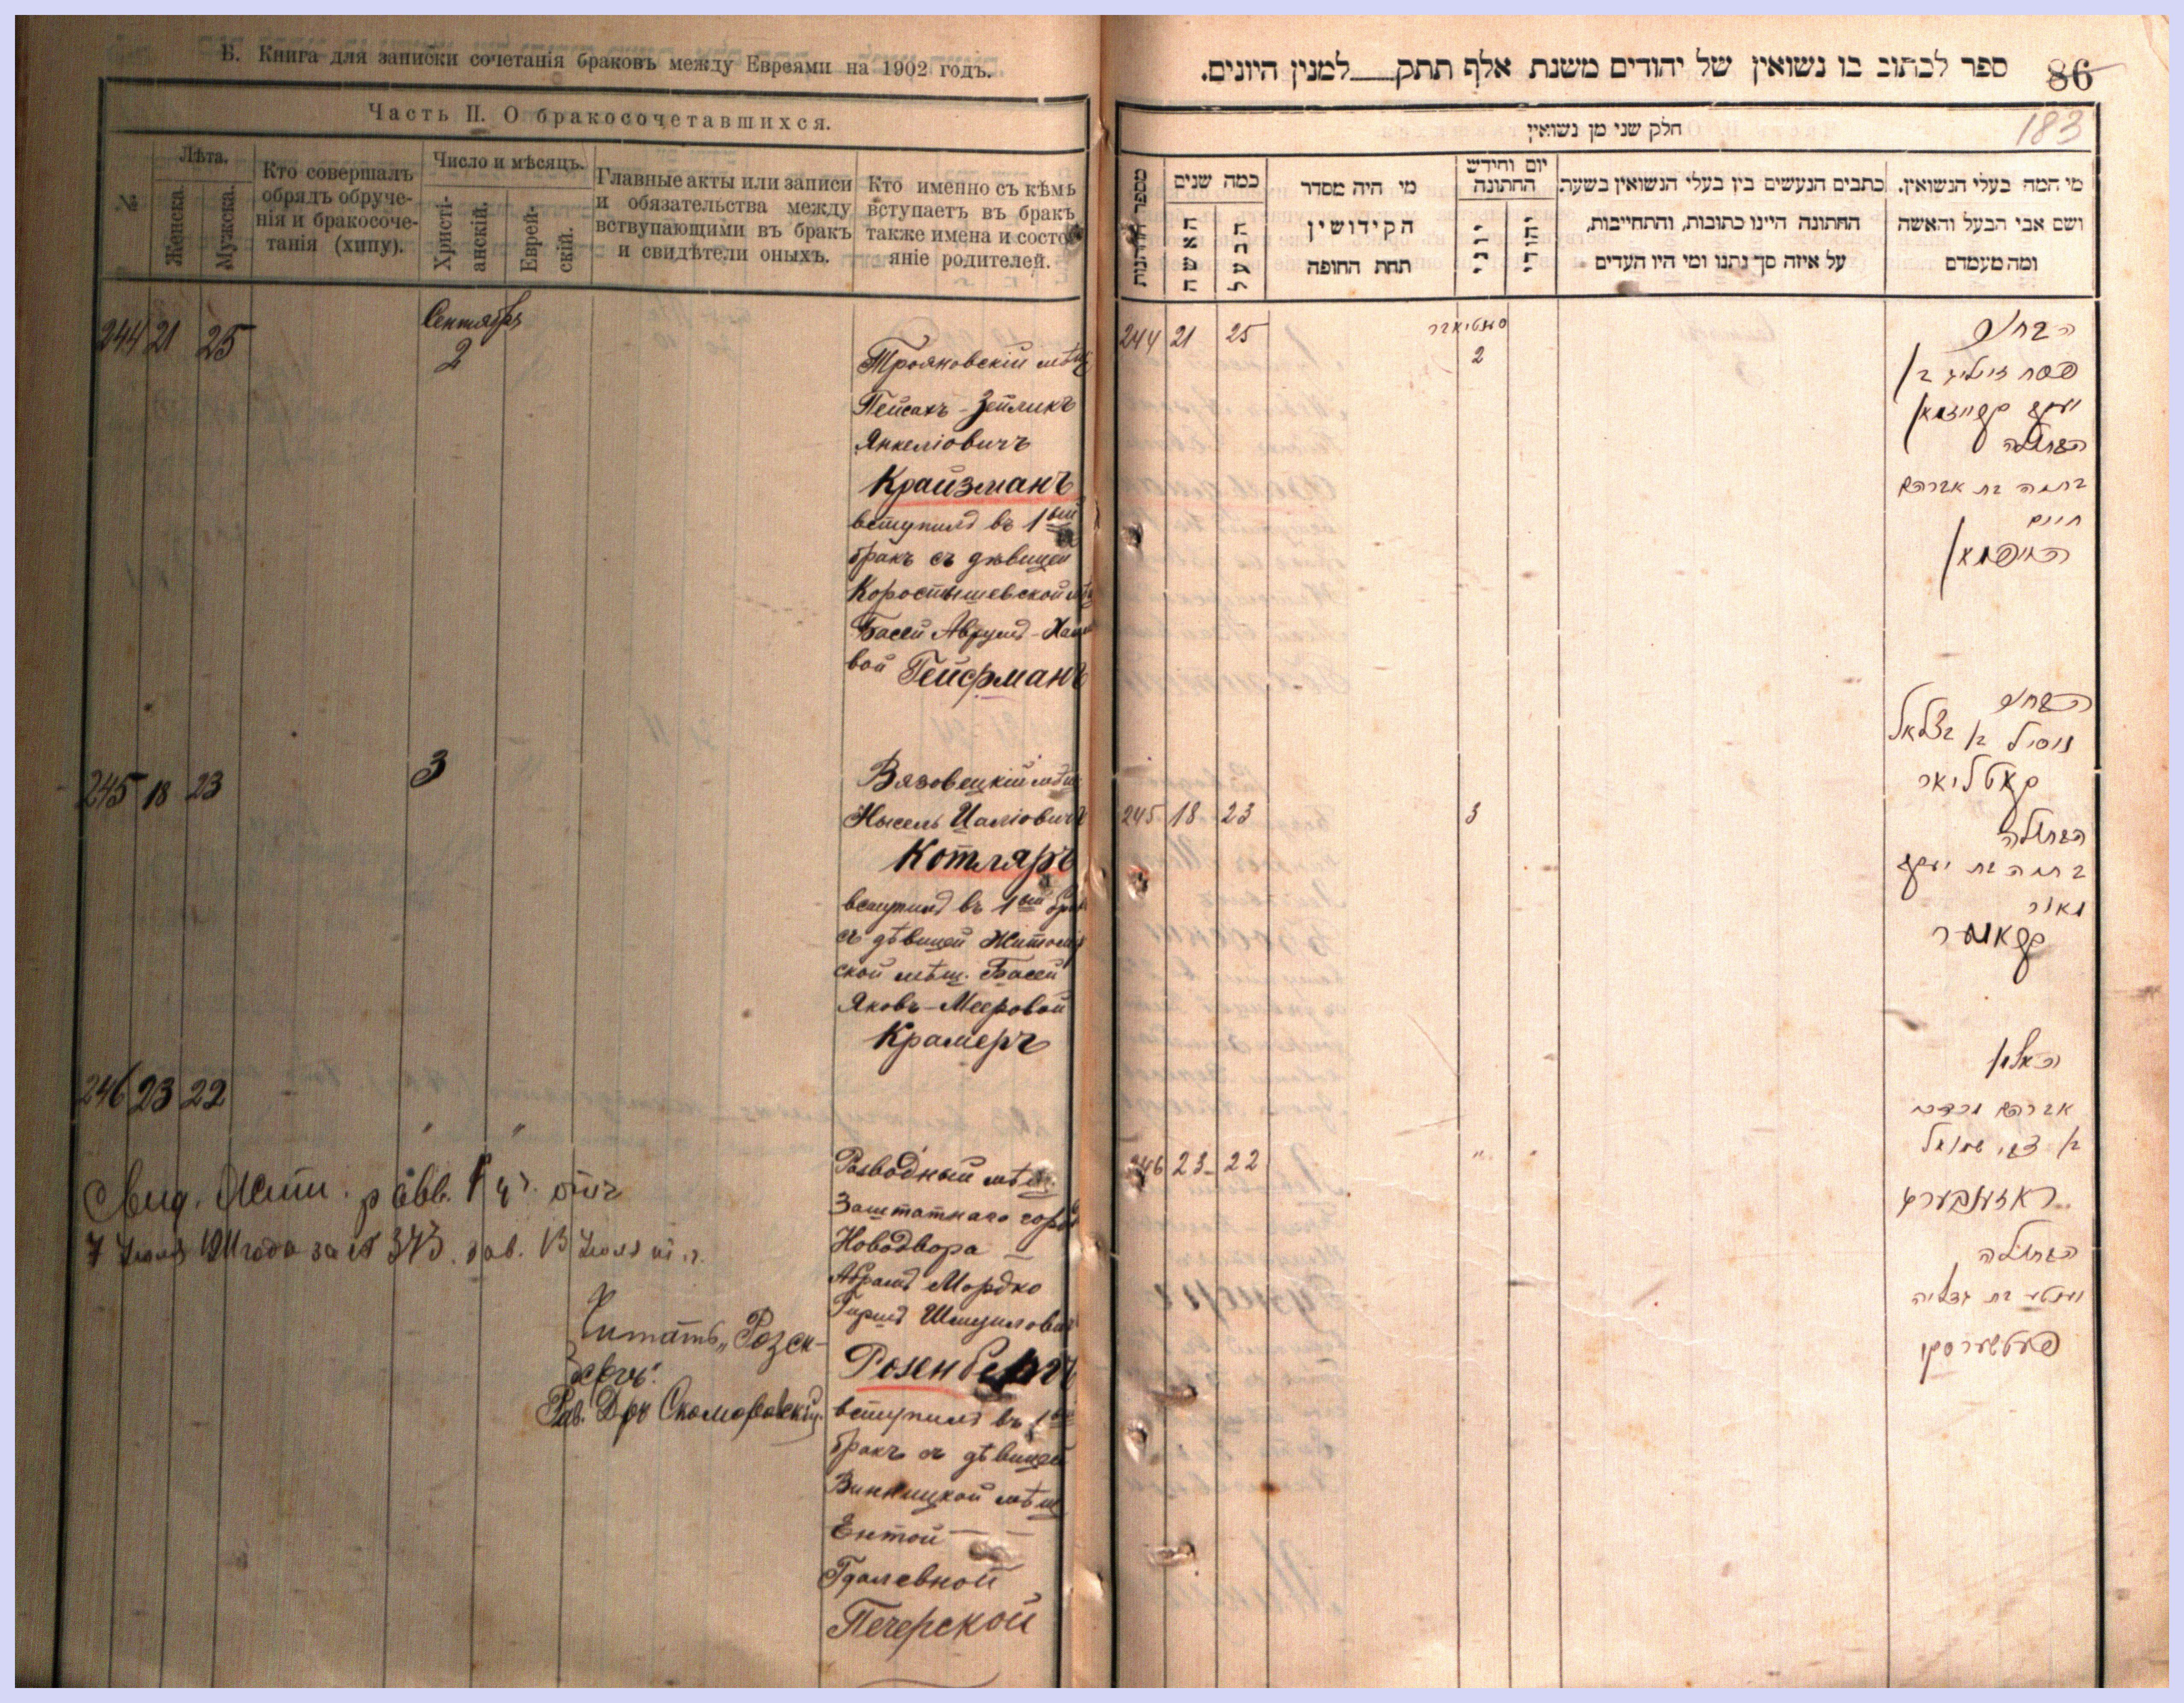 Б. Книга для записки сочетанія браковъ между Евреями на 1902 годъ.
Часть II. О бракосочетавшихся.
№
Лѣта.
Женска.
Мужска.
Кто совершалъ
обрядъ обруче-
нія и бракосоче-
танія (хипу).
Число и мѣсяцъ.
Христі-
анскій.
Еврей-
скій.
Главные акты или записи
и обязательства между
вступающими въ бракъ
и свидѣтели оныхъ.
Кто именно съ кѣмъ
вступаетъ въ бракъ
также имена и состо-
яніе родителей.
244 21 25
Сентября
2
Трояновскій мѣщ
Пейсахъ-Зейликъ
Янкеліовичъ
Крайзманъ
вступилъ въ 1ый
бракъ съ дѣвицей
Коростышевской мѣщ
Басей Аврумъ-Хаим
вой Гейфманъ
245 18 23
3
Вязовецкій мѣщ
Нысель Цаліовичъ
Котляръ
вступилъ въ 1ый бракъ
съ дѣвицей Житомір
ской мѣщ. Басей
Яковъ-Мееровой
Крамеръ
246 23 22
" "
Розводный мѣщ.
Заштатнаго город
Новодвора
Абрамъ Мордко
Гершъ Шмуиловичъ
Розенбергъ
вступилъ въ 1ый
бракъ съ дѣвицей
Винницкой мѣщ
Ентой
Гдалевной
Печерской
7 Іюля 1911 года за № 343.
Читать „Розен-
бергъ".
Рав. Д-ръ Скоморовскій.
ספר לכתוב בו נשואין של יהודים משנת אלף תתק למנין היונים.
86
183
חלק שני מן נשואין
מספר החתונות
כמה שנים
האשה
הבעל
מי היה מסדר
הקידושין
תחת החופה
יום וחידש
החתונה
יוני
יהודי
כתבים הנעשים בין בעלי הנשואין בשעת
החתונה היינו כתובות, והתחייבות,
על איזה סך נתנו ומי היו העדים
מי המה בעלי הנשואין.
ושם אבי הבעל והאשה
ומה מעמדם
244 21 25
סענטיאברר
2
הבחור
פסח זייליג בן
יעקב קרייזמאן
הבתולה
בתיה בת אברהם
חיים
הייפמאן
הבחור
ניסיל בן בצלאל
קאטליאר
245 18 23
3
הבתולה
בתיה בת יעקב
מאיר
קראמער
246 23 22
" "
האלמן
אברהם מרדכי
בן צבי שמואל
ראזענבערג
הבתולה
יענטע בת גדליה
פעטשערסקי